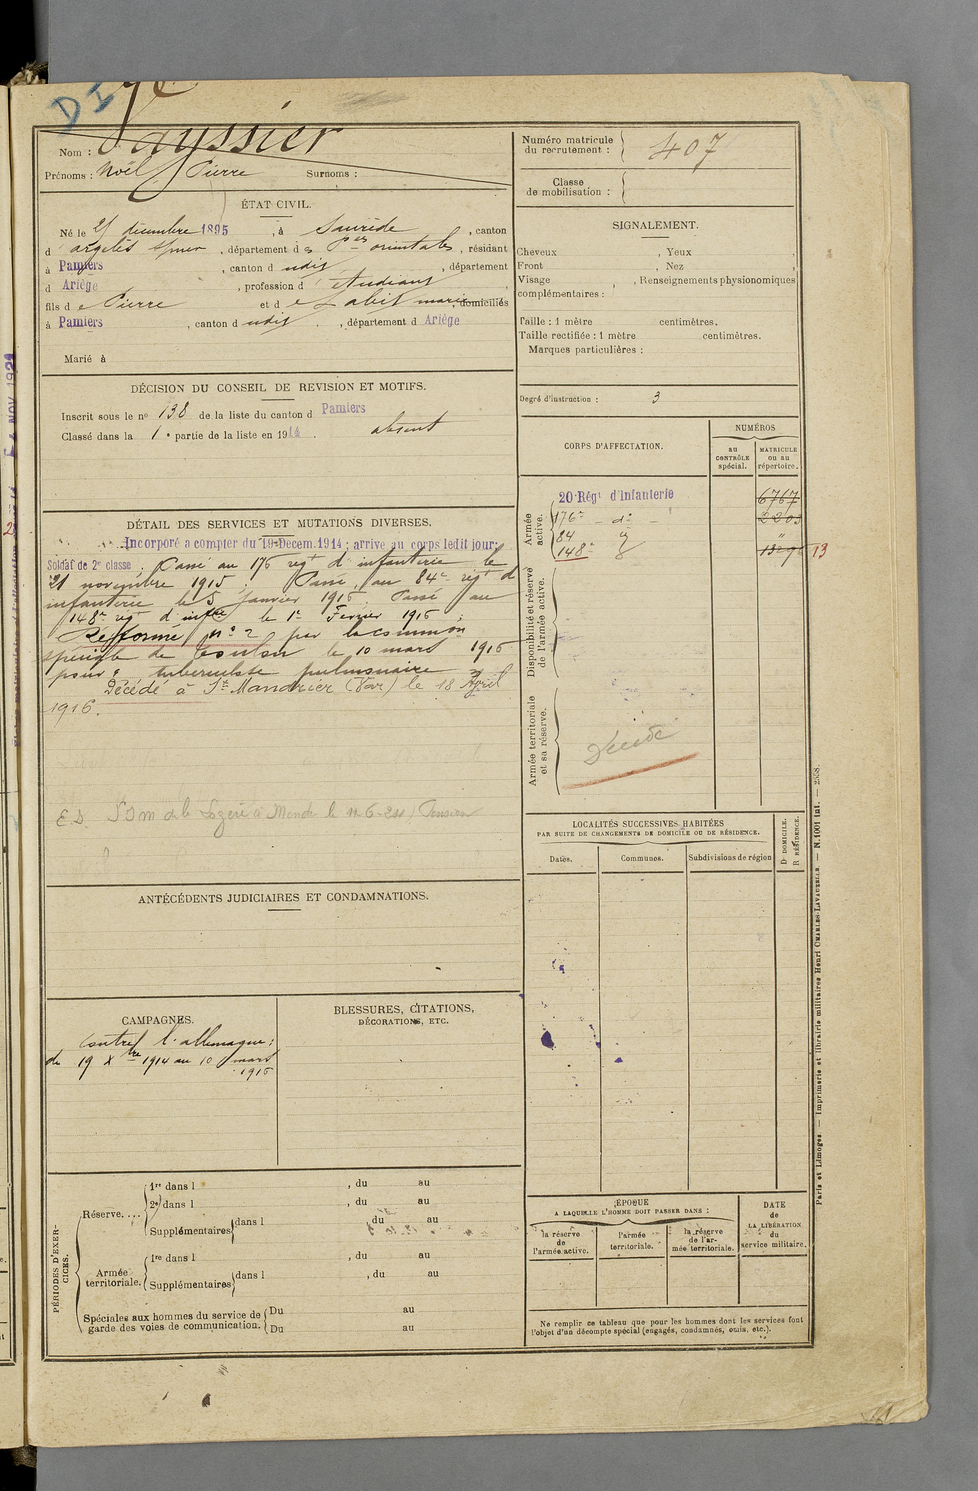 DI
Nom : Vayssier
Prénoms : Noël Pierre Surnoms :
Numéro matricule du recrutement : 407
Classe de mobilisation :
ÉTAT CIVIL.
Né le 25 décembre 1895, à Sorède, canton
d'argelès s/mer, département des Pces orientales, résidant
à Pamiers, canton d udit, département
d Ariège, profession d' étudiant,
fils de Pierre et de Labit marie, domiciliés
à Pamiers, canton d udit, département d Ariège
Marié à
SIGNALEMENT.
Cheveux , Yeux ,
Front , Nez
Visage , Renseignements physionomiques
complémentaires :
Taille : 1 mètre centimètres.
Taille rectifiée : 1 mètre centimètres.
Marques particulières :
Degré d'instruction : 3
DÉCISION DU CONSEIL DE REVISION ET MOTIFS.
Inscrit sous le no 138 de la liste du canton d Pamiers
Classé dans la 1e partie de la liste en 1914. absent
CORPS D'AFFECTATION.
NUMÉROS
au CONTRÔLE spécial.
MATRICULE ou au répertoire.
Armée active.
20e Régt d'Infanterie 6767
176e - do - 2203
84 "
148e 13296 13
Disponibilité et réserve de l'armée active.
Armée territoriale et sa réserve.
Décédé
DÉTAIL DES SERVICES ET MUTATIONS DIVERSES.
Incorporé a compter du 19 Decem. 1914 ; arrivé au corps ledit jour;
Soldat de 2e classe. Passé au 176 régt d'infanterie le
21 novembre 1915. Passé au 84e régt d
infanterie le 5 Janvier 1916. Passé au
148e régt d'infrie le 1er Février 1916.
Réformé no 2 par la commion
spéciale de Toulon le 10 mars 1916
pour : tuberculose pulmonaire
Décédé à St Mandrier (Var) le 18 Avril
1916.
E.D. Lozère à Mende le Pension
LOCALITÉS SUCCESSIVES HABITÉES
PAR SUITE DE CHANGEMENTS DE DOMICILE OU DE RÉSIDENCE.
Dates.
Communes.
Subdivisions de région
D DOMICILE.
R RÉSIDENCE.
ANTÉCÉDENTS JUDICIAIRES ET CONDAMNATIONS.
CAMPAGNES.
Contre l'allemagne :
du 19 Xbre 1914 au 10 mars
1916
BLESSURES, CITATIONS,
DÉCORATIONS, ETC.
PÉRIODES D'EXERCICES.
Réserve....
1re dans l , du au
2e dans l , du au
Supplémentaires dans l , du au
Armée territoriale.
1re dans l , du au
Supplémentaires dans l , du au
Spéciales aux hommes du service de garde des voies de communication.
Du au
Du au
ÉPOQUE
A LAQUELLE L'HOMME DOIT PASSER DANS :
la réserve de l'armée active.
l'armée territoriale.
la réserve de l'armée territoriale.
DATE de LA LIBÉRATION du service militaire.
Ne remplir ce tableau que pour les hommes dont les services font
l'objet d'un décompte spécial (engagés, condamnés, omis, etc.).
Paris et Limoges. — Imprimerie et librairie militaires Henri CHARLES-LAVAUZELLE. — N. 1001 int. — 2538.